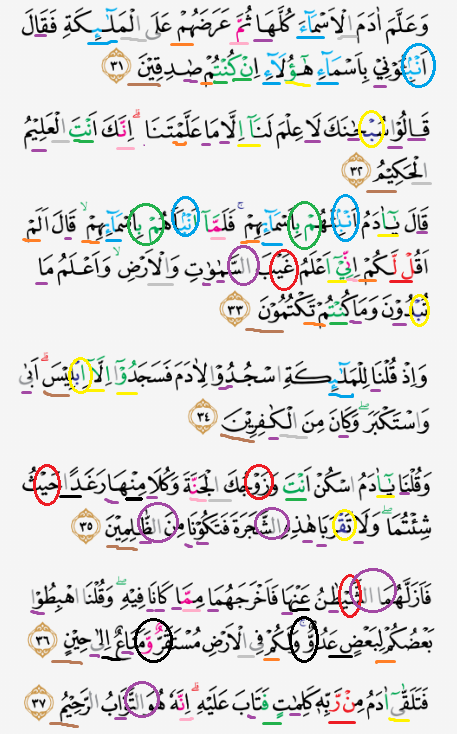 وَعَلَّمَ اٰدَمَ الْاَسْمَاۤءَ كُلَّهَا ثُمَّ عَرَضَهُمْ عَلَى الْمَلٰۤىِٕكَةِ فَقَالَ
اَنْۢبِـُٔوْنِيْ بِاَسْمَاۤءِ هٰٓؤُلَاۤءِ اِنْ كُنْتُمْ صٰدِقِيْنَ ٣١
قَالُوْا سُبْحٰنَكَ لَا عِلْمَ لَنَآ اِلَّا مَا عَلَّمْتَنَا ۗ اِنَّكَ اَنْتَ الْعَلِيْمُ
الْحَكِيْمُ ٣٢
قَالَ يٰٓاٰدَمُ اَنْۢبِئْهُمْ بِاَسْمَاۤىِٕهِمْ ۚ فَلَمَّآ اَنْۢبَاَهُمْ بِاَسْمَاۤىِٕهِمْ ۙ قَالَ اَلَمْ
اَقُلْ لَّكُمْ اِنِّيْٓ اَعْلَمُ غَيْبَ السَّمٰوٰتِ وَالْاَرْضِ ۙ وَاَعْلَمُ مَا
تُبْدُوْنَ وَمَا كُنْتُمْ تَكْتُمُوْنَ ٣٣
وَاِذْ قُلْنَا لِلْمَلٰۤىِٕكَةِ اسْجُدُوْا لِاٰدَمَ فَسَجَدُوْٓا اِلَّآ اِبْلِيْسَۗ اَبٰى
وَاسْتَكْبَرَۖ وَكَانَ مِنَ الْكٰفِرِيْنَ ٣٤
وَقُلْنَا يٰٓاٰدَمُ اسْكُنْ اَنْتَ وَزَوْجُكَ الْجَنَّةَ وَكُلَا مِنْهَا رَغَدًا حَيْثُ
شِئْتُمَاۖ وَلَا تَقْرَبَا هٰذِهِ الشَّجَرَةَ فَتَكُوْنَا مِنَ الظّٰلِمِيْنَ ٣٥
فَاَزَلَّهُمَا الشَّيْطٰنُ عَنْهَا فَاَخْرَجَهُمَا مِمَّا كَانَا فِيْهِ ۖ وَقُلْنَا اهْبِطُوْا
بَعْضُكُمْ لِبَعْضٍ عَدُوٌّ ۚ وَلَكُمْ فِى الْاَرْضِ مُسْتَقَرٌّ وَّمَتَاعٌ اِلٰى حِيْنٍ ٣٦
فَتَلَقّٰٓى اٰدَمُ مِنْ رَّبِّهٖ كَلِمٰتٍ فَتَابَ عَلَيْهِ ۗ اِنَّهٗ هُوَ التَّوَّابُ الرَّحِيْمُ ٣٧